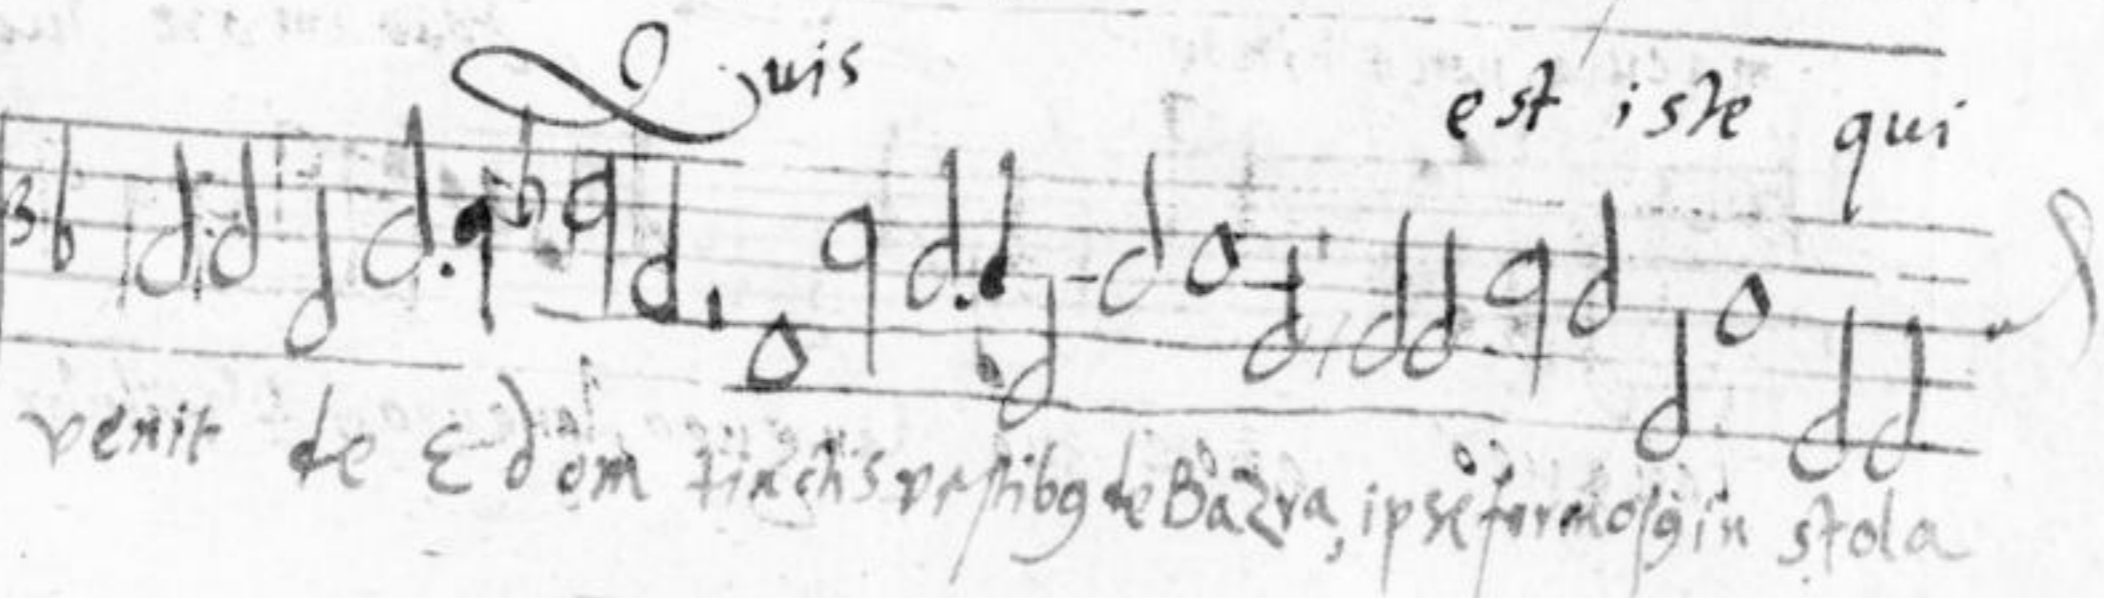 Quis est iste qui
venit de Edom tinctis vestibꝯ de Bazra, ipse formosꝯ in stola